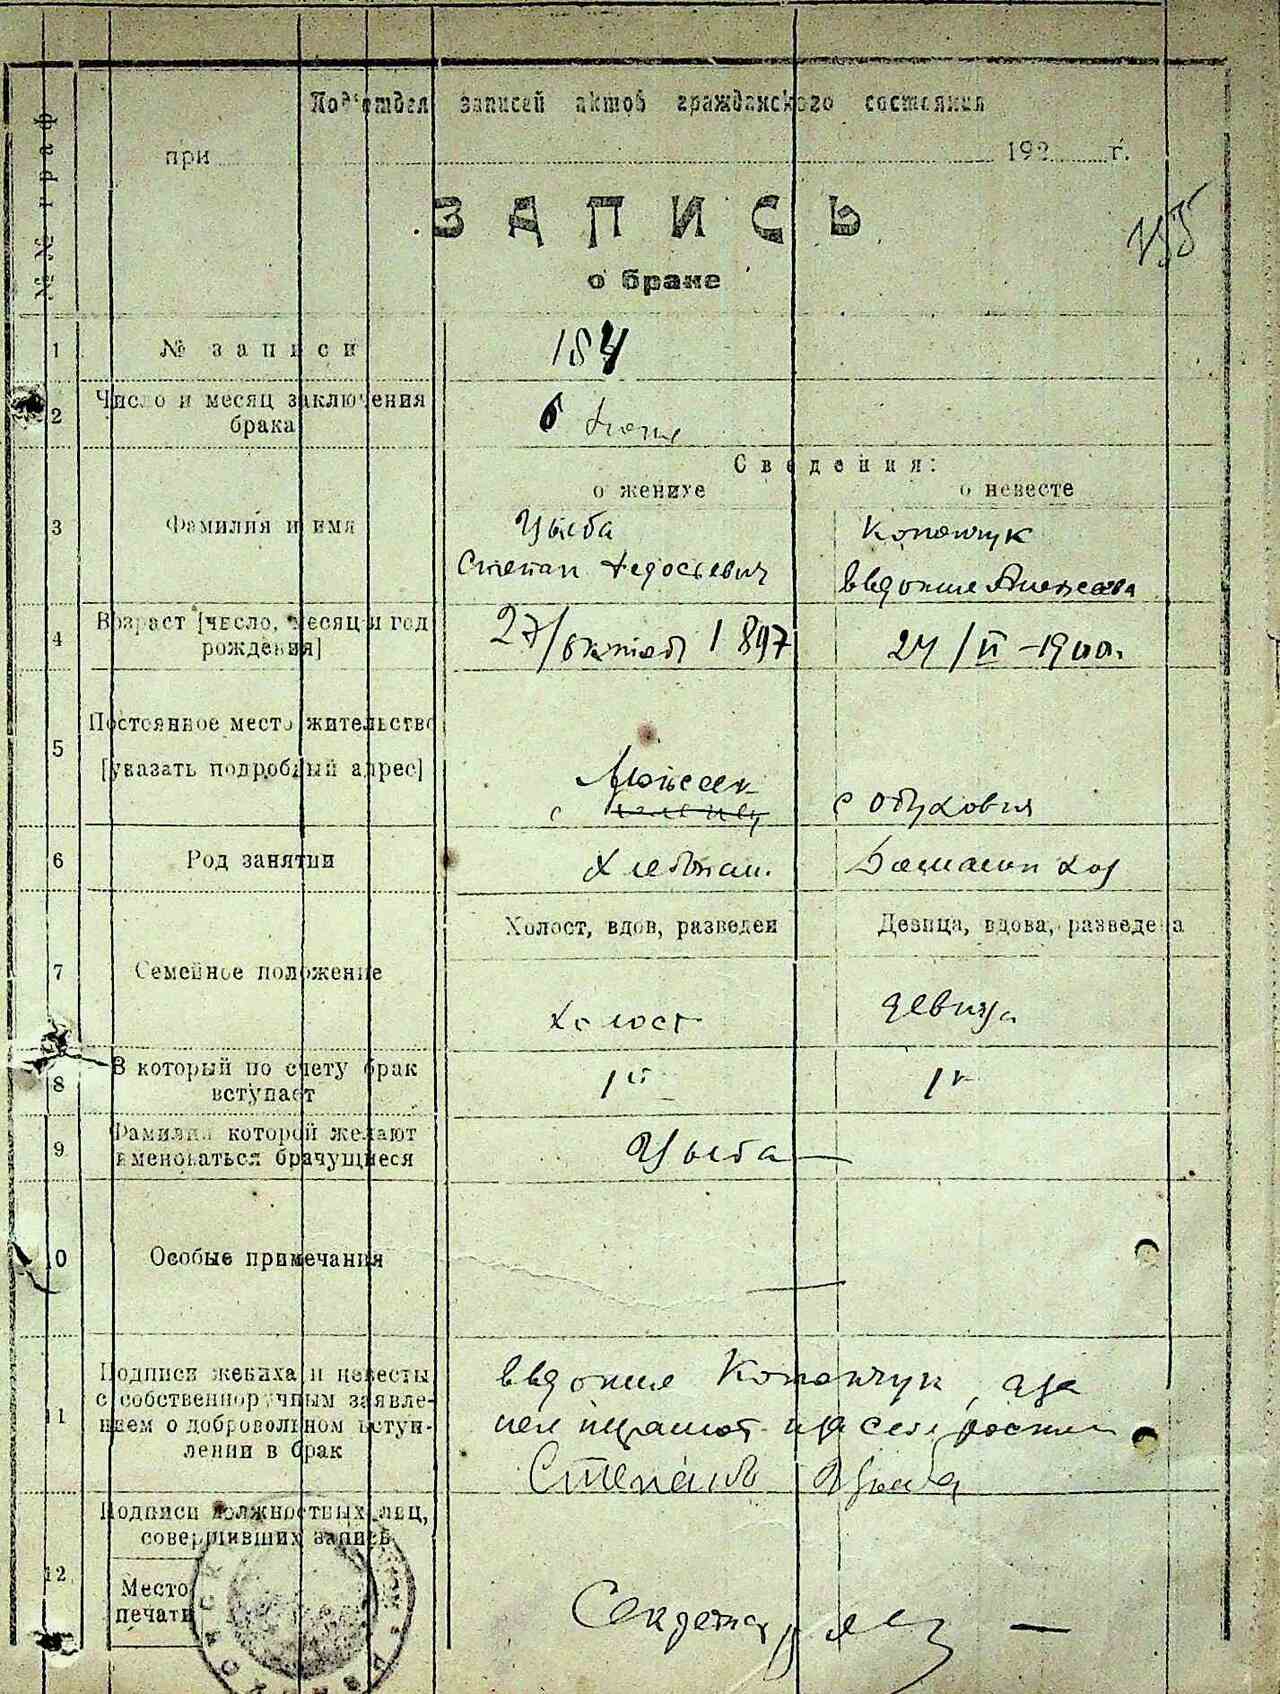 Под'отдел записей актов гражданского состояния
при 192 г.
№№ граф
ЗАПИСЬ
о браке
1 № записи 184
2 Число и месяц заключения
брака 6
Сведения:
о женихе о невесте
3 Фамилия и имя Цыба Копанчук
Степан Федосьевич Евдокия
4 Возраст [число, месяц и год
рождения] 27/октяб 1897 24/II-1900.
5 Постоянное место жительство
[указать подробный адрес]
с с Обуховка
6 Род занятии Хлебопаш. Домашн хоз
Холост, вдов, разведен Девица, вдова, разведена
7 Семейное положение
холост девица
8 В который по счету брак
вступает 1й 1й
9 Фамилия которой желают
именоваться брачущиеся Цыба
10 Особые примечания —
11 Подписи жениха и невесты
с собственноручным заявле-
нием о добровольном вступ-
лении в брак
Евдокия Копанчук, а за
Степанъ Цыба
12 Подписи должностных лиц,
совершивших запись
Место
печати
Секретарь